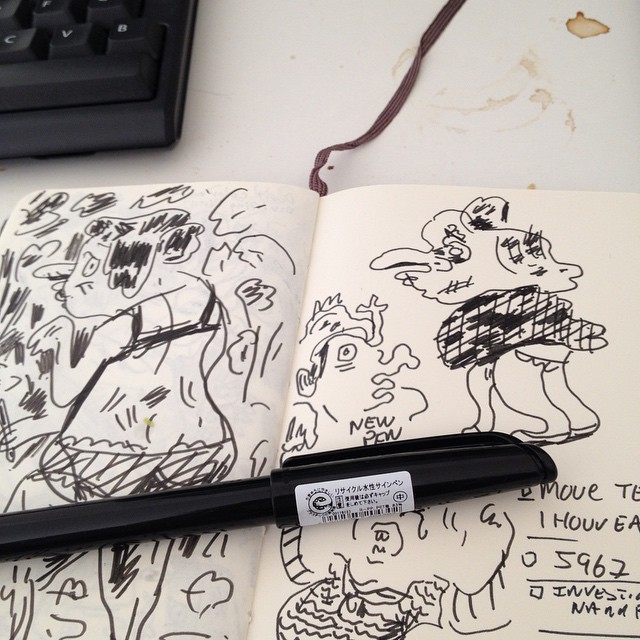 F
C V B
NEW
PEN
リサイクル水性サインペン
使用後は必ずキャップ
をしめて下さい。
中
MOVE TE
1 HOUR EA
5967
INVESTI